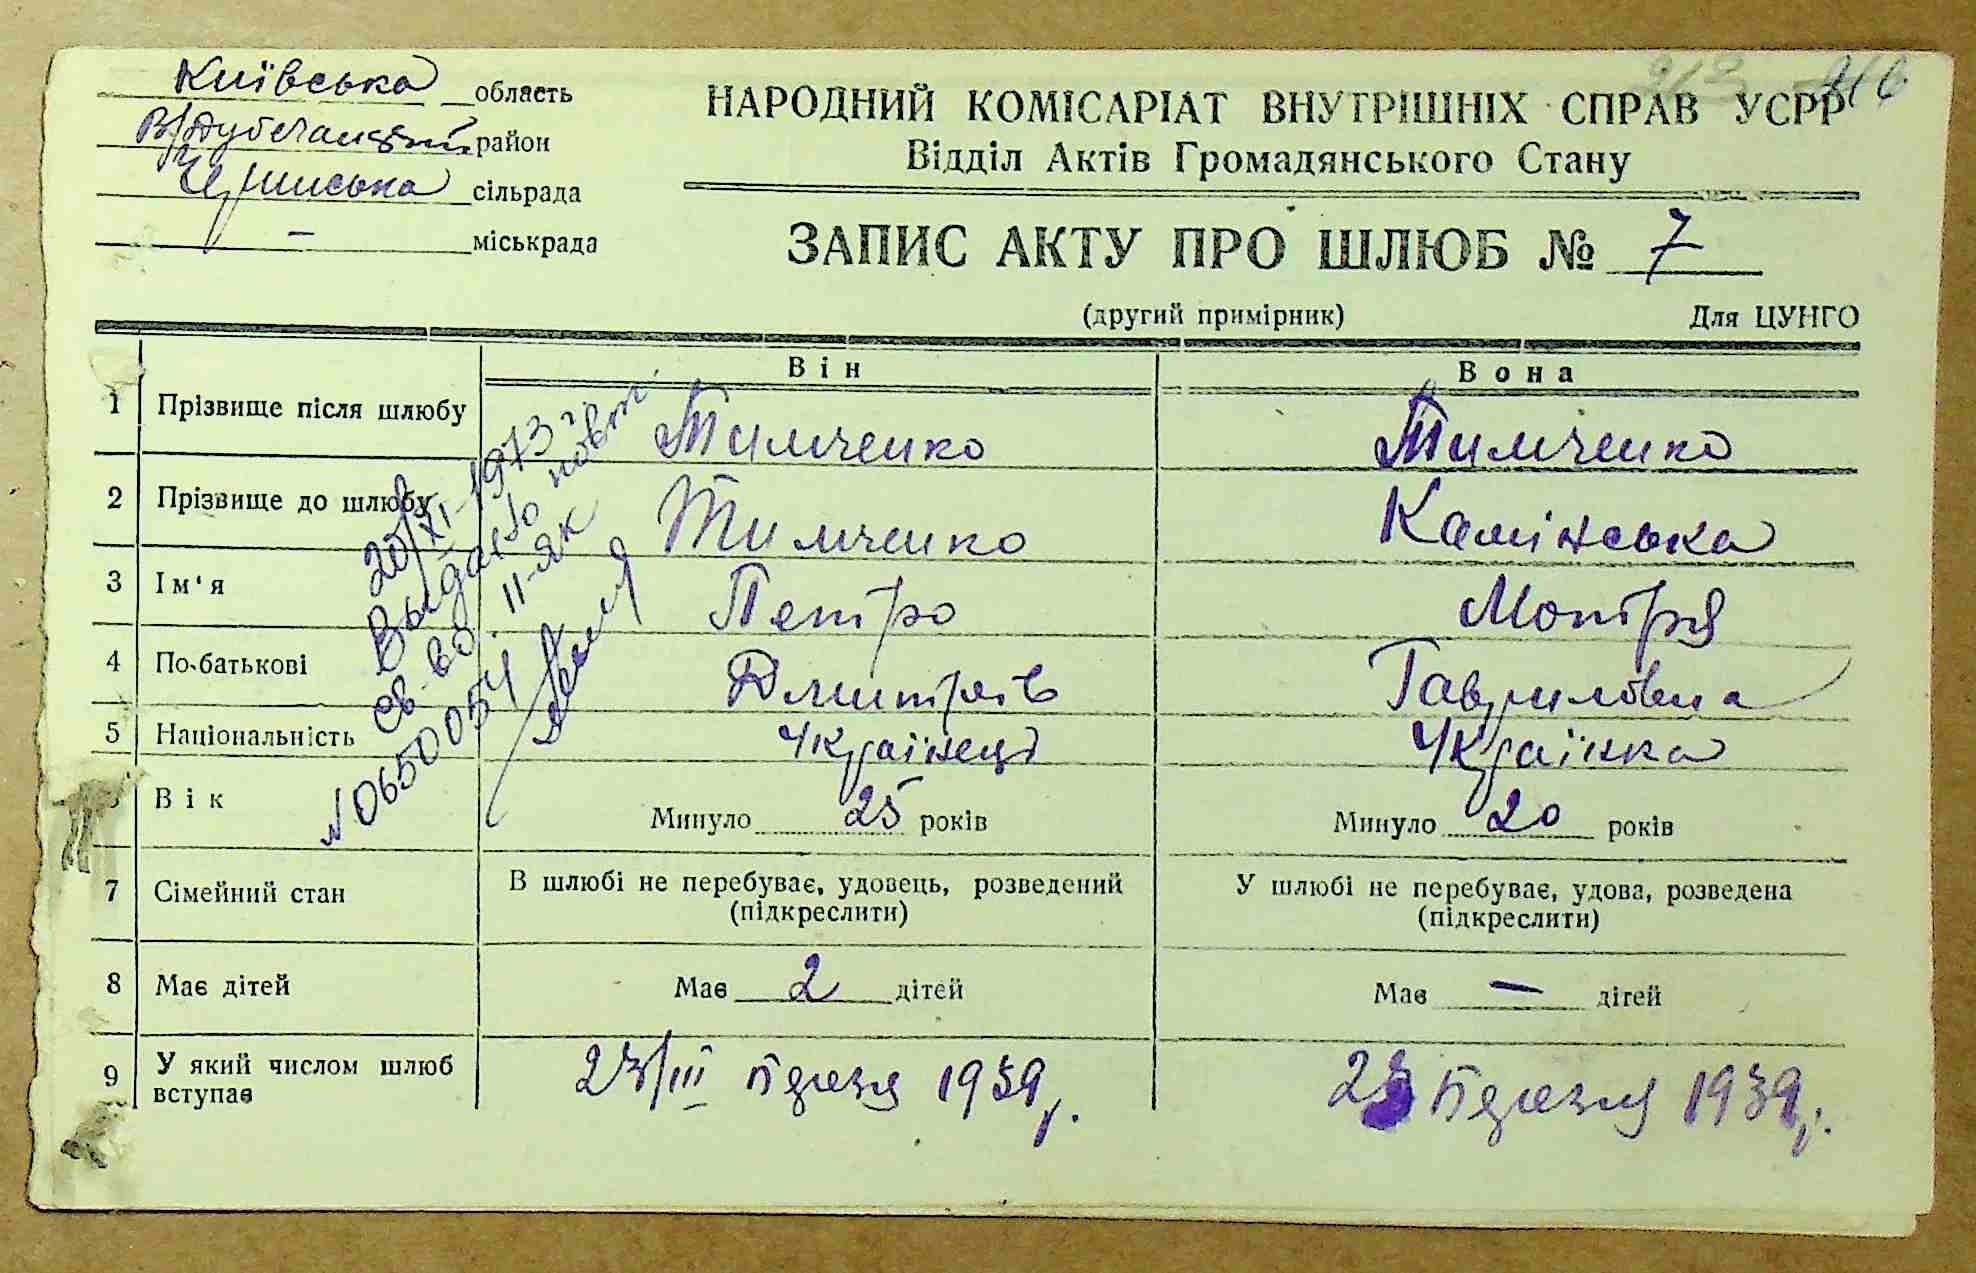 Київська область
В/Дубечанський район
сільрада
— міськрада
НАРОДНИЙ КОМІСАРІАТ ВНУТРІШНІХ СПРАВ УСРР
Відділ Актів Громадянського Стану
ЗАПИС АКТУ ПРО ШЛЮБ № 7
(другий примірник) Для ЦУНГО
Він Вона
1 Прізвище після шлюбу Тимченко Тимченко
2 Прізвище до шлюбу Тимченко Камінська
3 Ім'я Петро Мотря
4 По-батькові Дмитрів Гаврилівна
5 Національність Українець Українка
Вік Минуло 25 років Минуло 20 років
7 Сімейний стан В шлюбі не перебуває, удовець, розведений У шлюбі не перебуває, удова, розведена
(підкреслити) (підкреслити)
8 Має дітей Має 2 дітей Має — дітей
9 У який числом шлюб
вступає 23/III Березня 1939 р. 23 Березня 1939 р.
20/XI-1973 г.
Выдано повт.
св-во II-ЯК
№ 0650054